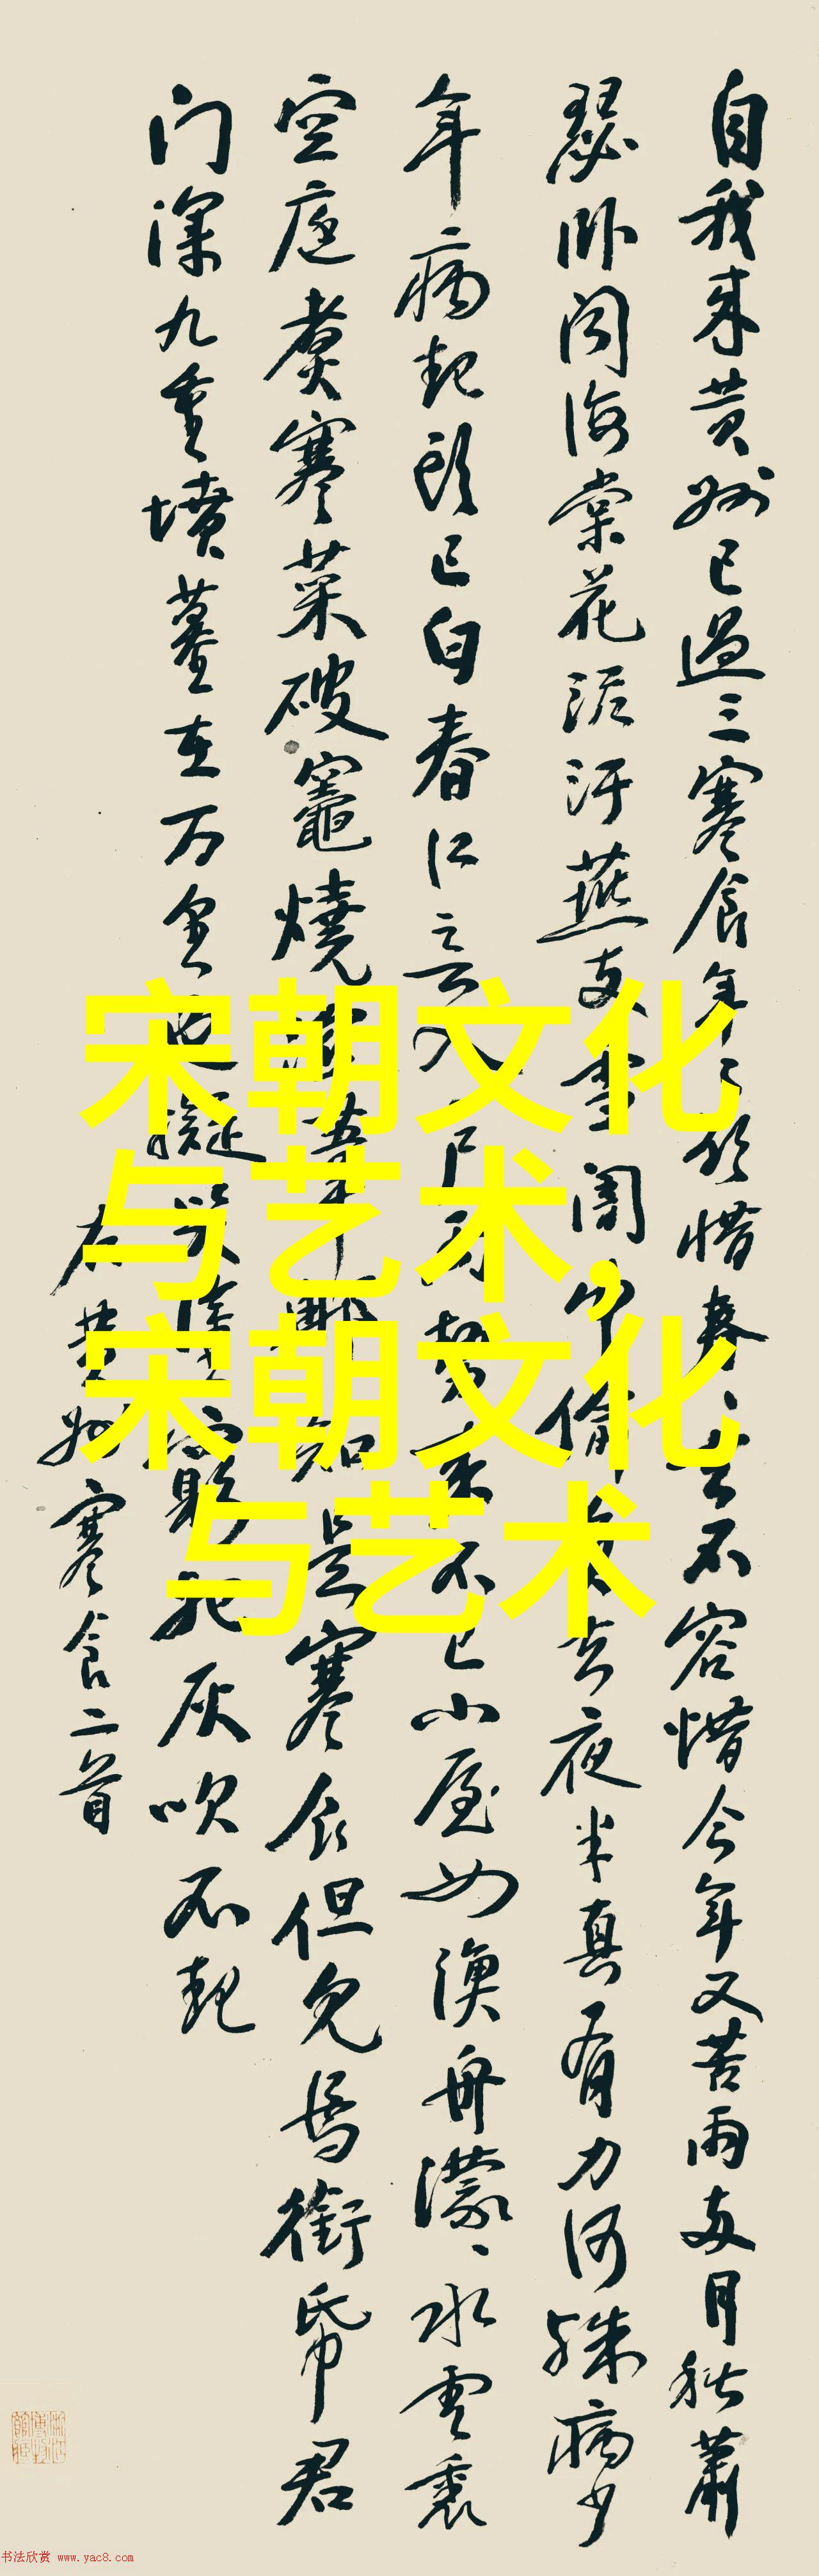 自我来黄州已過三寒食年〻欲惜春〻去不容惜今年又苦雨两月秋蕭
瑟卧闻海棠花泥汙燕支雪闇中偷負去夜半真有力何殊病少
年病起頭已白春江入户雨势来不已小屋如漁舟濛〻水雲裏
空庖煮寒菜破竈燒濕葦那知是寒食但見烏銜帋君
门深九重墳墓在万里也擬哭塗窮死灰吹不起
右黄州寒食二首
宋朝文化
与艺术,
宋朝文化
与艺术
书法欣赏 www.yac8.com